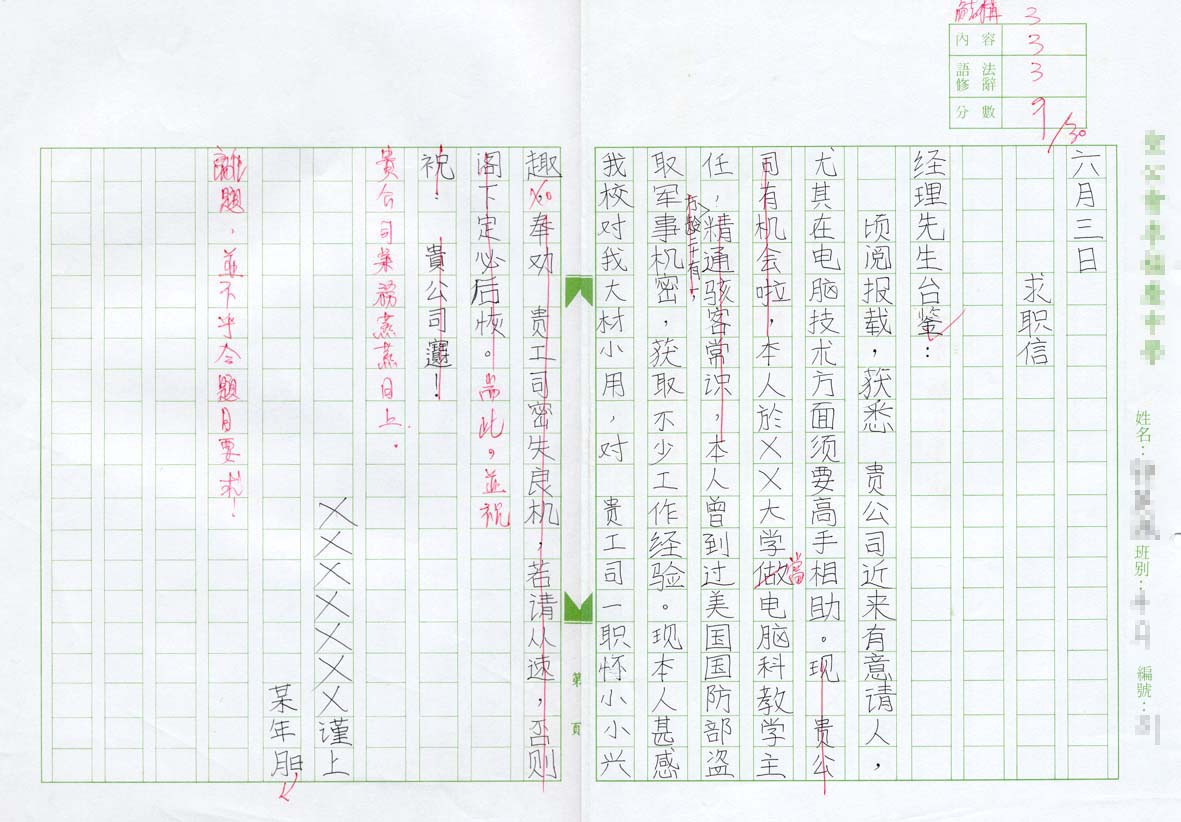 結構 3
內容 3
語法修辭 3
分數 9/30
姓名：
班別：
編號：
六月三日
求职信
经理先生台鉴：
顷阅报载，获悉 贵公司近来有意请人，
尤其在电脑技术方面须要高手相助。现 贵公
司有机会啦，本人於××大学做电脑科教学主
當
任，精通骇客常识，本人曾到过美国国防部盗
取军事机密，获取不少工作经验。现本人甚感
我校对我大材小用，对 贵工司一职怀小小兴
第 頁
趣，奉劝 贵工司密失良机，若请从速，否则
阁下定必后恢。耑此，並祝
祝！ 貴公司！
貴公司業務蒸蒸日上．
×××××××谨上
某年月日
離題，並不乎合題目要求！